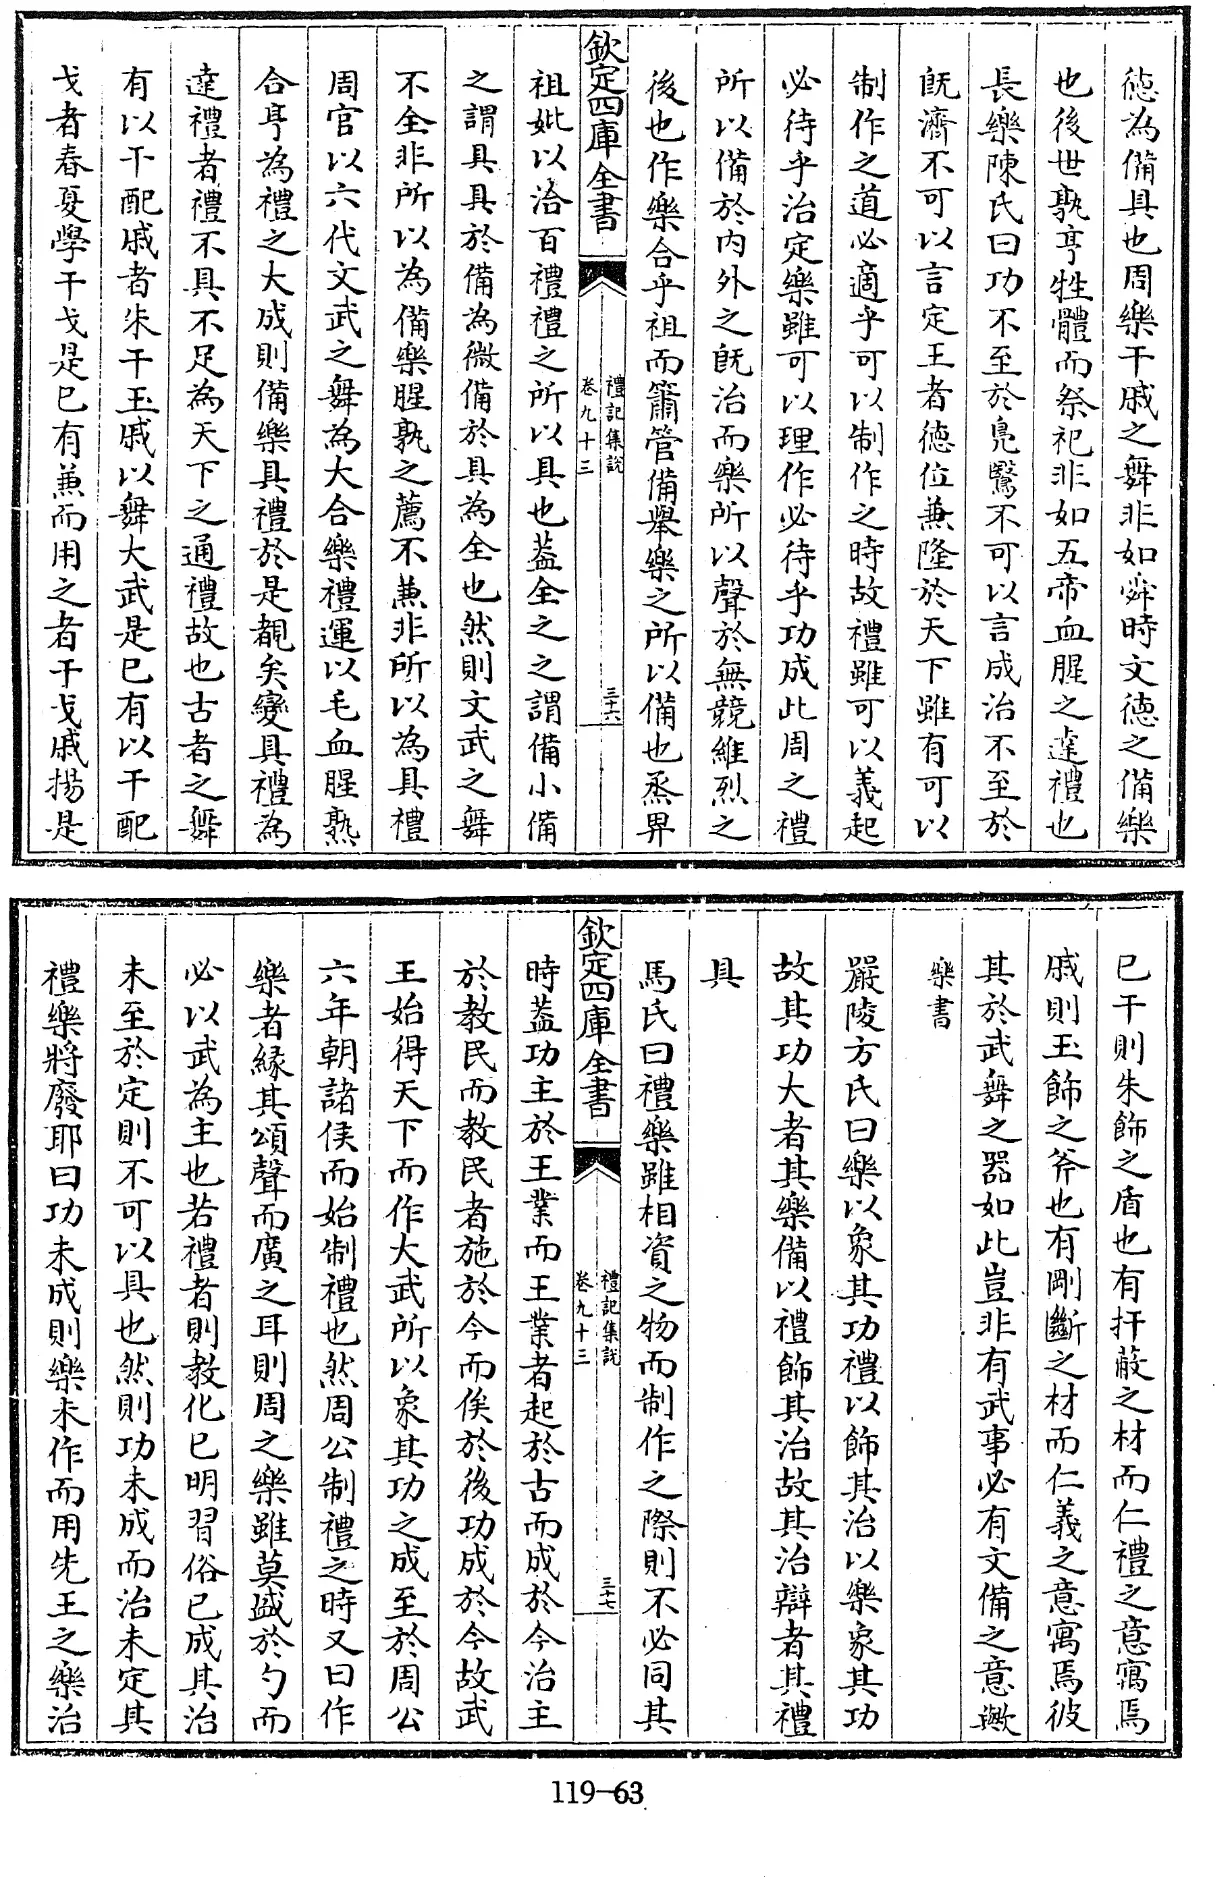 德為備具也周樂干戚之舞非如舜時文德之備樂
也後世孰亨牲體而祭祀非如五帝血腥之達禮也
長樂陳氏曰功不至於鳧鷖不可以言成治不至於
既濟不可以言定王者德位兼隆於天下雖有可以
制作之道必適乎可以制作之時故禮雖可以義起
必待乎治定樂雖可以理作必待乎功成此周之禮
所以備於內外之既治而樂所以聲於無競維烈之
後也作樂合乎祖而簫管備舉樂之所以備也烝畀
欽定四庫全書
禮記集說
卷九十三
三十六
祖妣以洽百禮禮之所以具也葢全之之謂備小備
之謂具具於備為微備於具為全也然則文武之舞
不全非所以為備樂腥孰之薦不兼非所以為具禮
周官以六代文武之舞為大合樂禮運以毛血腥熟
合亨為禮之大成則備樂具禮於是覩矣變具禮為
達禮者禮不具不足為天下之通禮故也古者之舞
有以干配戚者朱干玉戚以舞大武是已有以干配
戈者春夏學干戈是已有兼而用之者干戈戚揚是
已干則朱飾之盾也有扞蔽之材而仁禮之意寓焉
戚則玉飾之斧也有剛斷之材而仁義之意寓焉彼
其於武舞之器如此豈非有武事必有文備之意歟
樂書
嚴陵方氏曰樂以象其功禮以飾其治以樂象其功
故其功大者其樂備以禮飾其治故其治辯者其禮
具
馬氏曰禮樂雖相資之物而制作之際則不必同其
欽定四庫全書
禮記集說
卷九十三
三十七
時葢功主於王業而王業者起於古而成於今治主
於教民而教民者施於今而俟於後功成於今故武
王始得天下而作大武所以象其功之成至於周公
六年朝諸侯而始制禮也然周公制禮之時又曰作
樂者緣其頌聲而廣之耳則周之樂雖莫盛於勺而
必以武為主也若禮者則教化已明習俗已成其治
未至於定則不可以具也然則功未成而治未定其
禮樂將廢耶曰功未成則樂未作而用先王之樂治
119-63